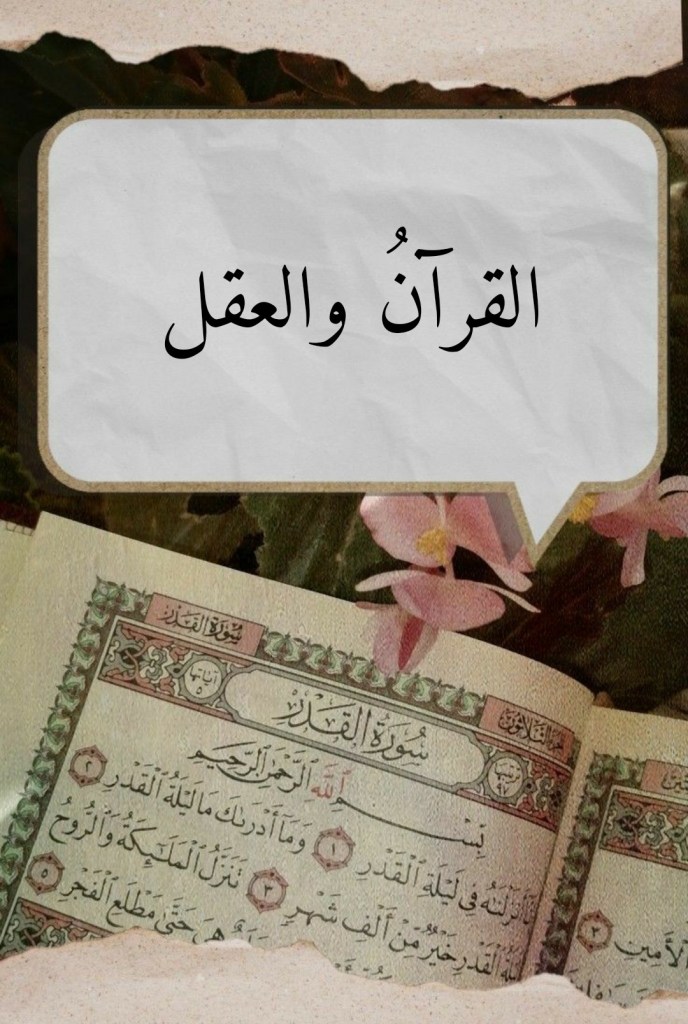 القرآنُ والعقل
سُورَةُ القَدْرِ
آياتها ٥
سُورَةُ القَدْرِ
بِسْمِ ٱللَّهِ ٱلرَّحْمَٰنِ ٱلرَّحِيمِ
أَنزَلْنَٰهُ فِى لَيْلَةِ ٱلْقَدْرِ ١ وَمَآ أَدْرَىٰكَ مَا لَيْلَةُ ٱلْقَدْرِ ٢
ٱلْقَدْرِ خَيْرٌ مِّنْ أَلْفِ شَهْرٍ ٣ تَنَزَّلُ ٱلْمَلَٰٓئِكَةُ وَٱلرُّوحُ
هِىَ حَتَّىٰ مَطْلَعِ ٱلْفَجْرِ ٥
ٱلْأَمِينِ ٣